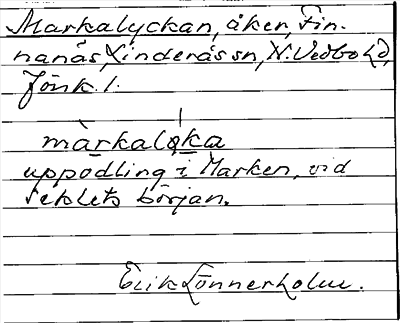 Markalyckan, åker, Fin-
nanäs, Linderås sn, N. Vedbo hd,
Jönk. l.
màrkalø̀ka
uppodling i Marken, vid
seklets början.
Erik Lönnerholm.